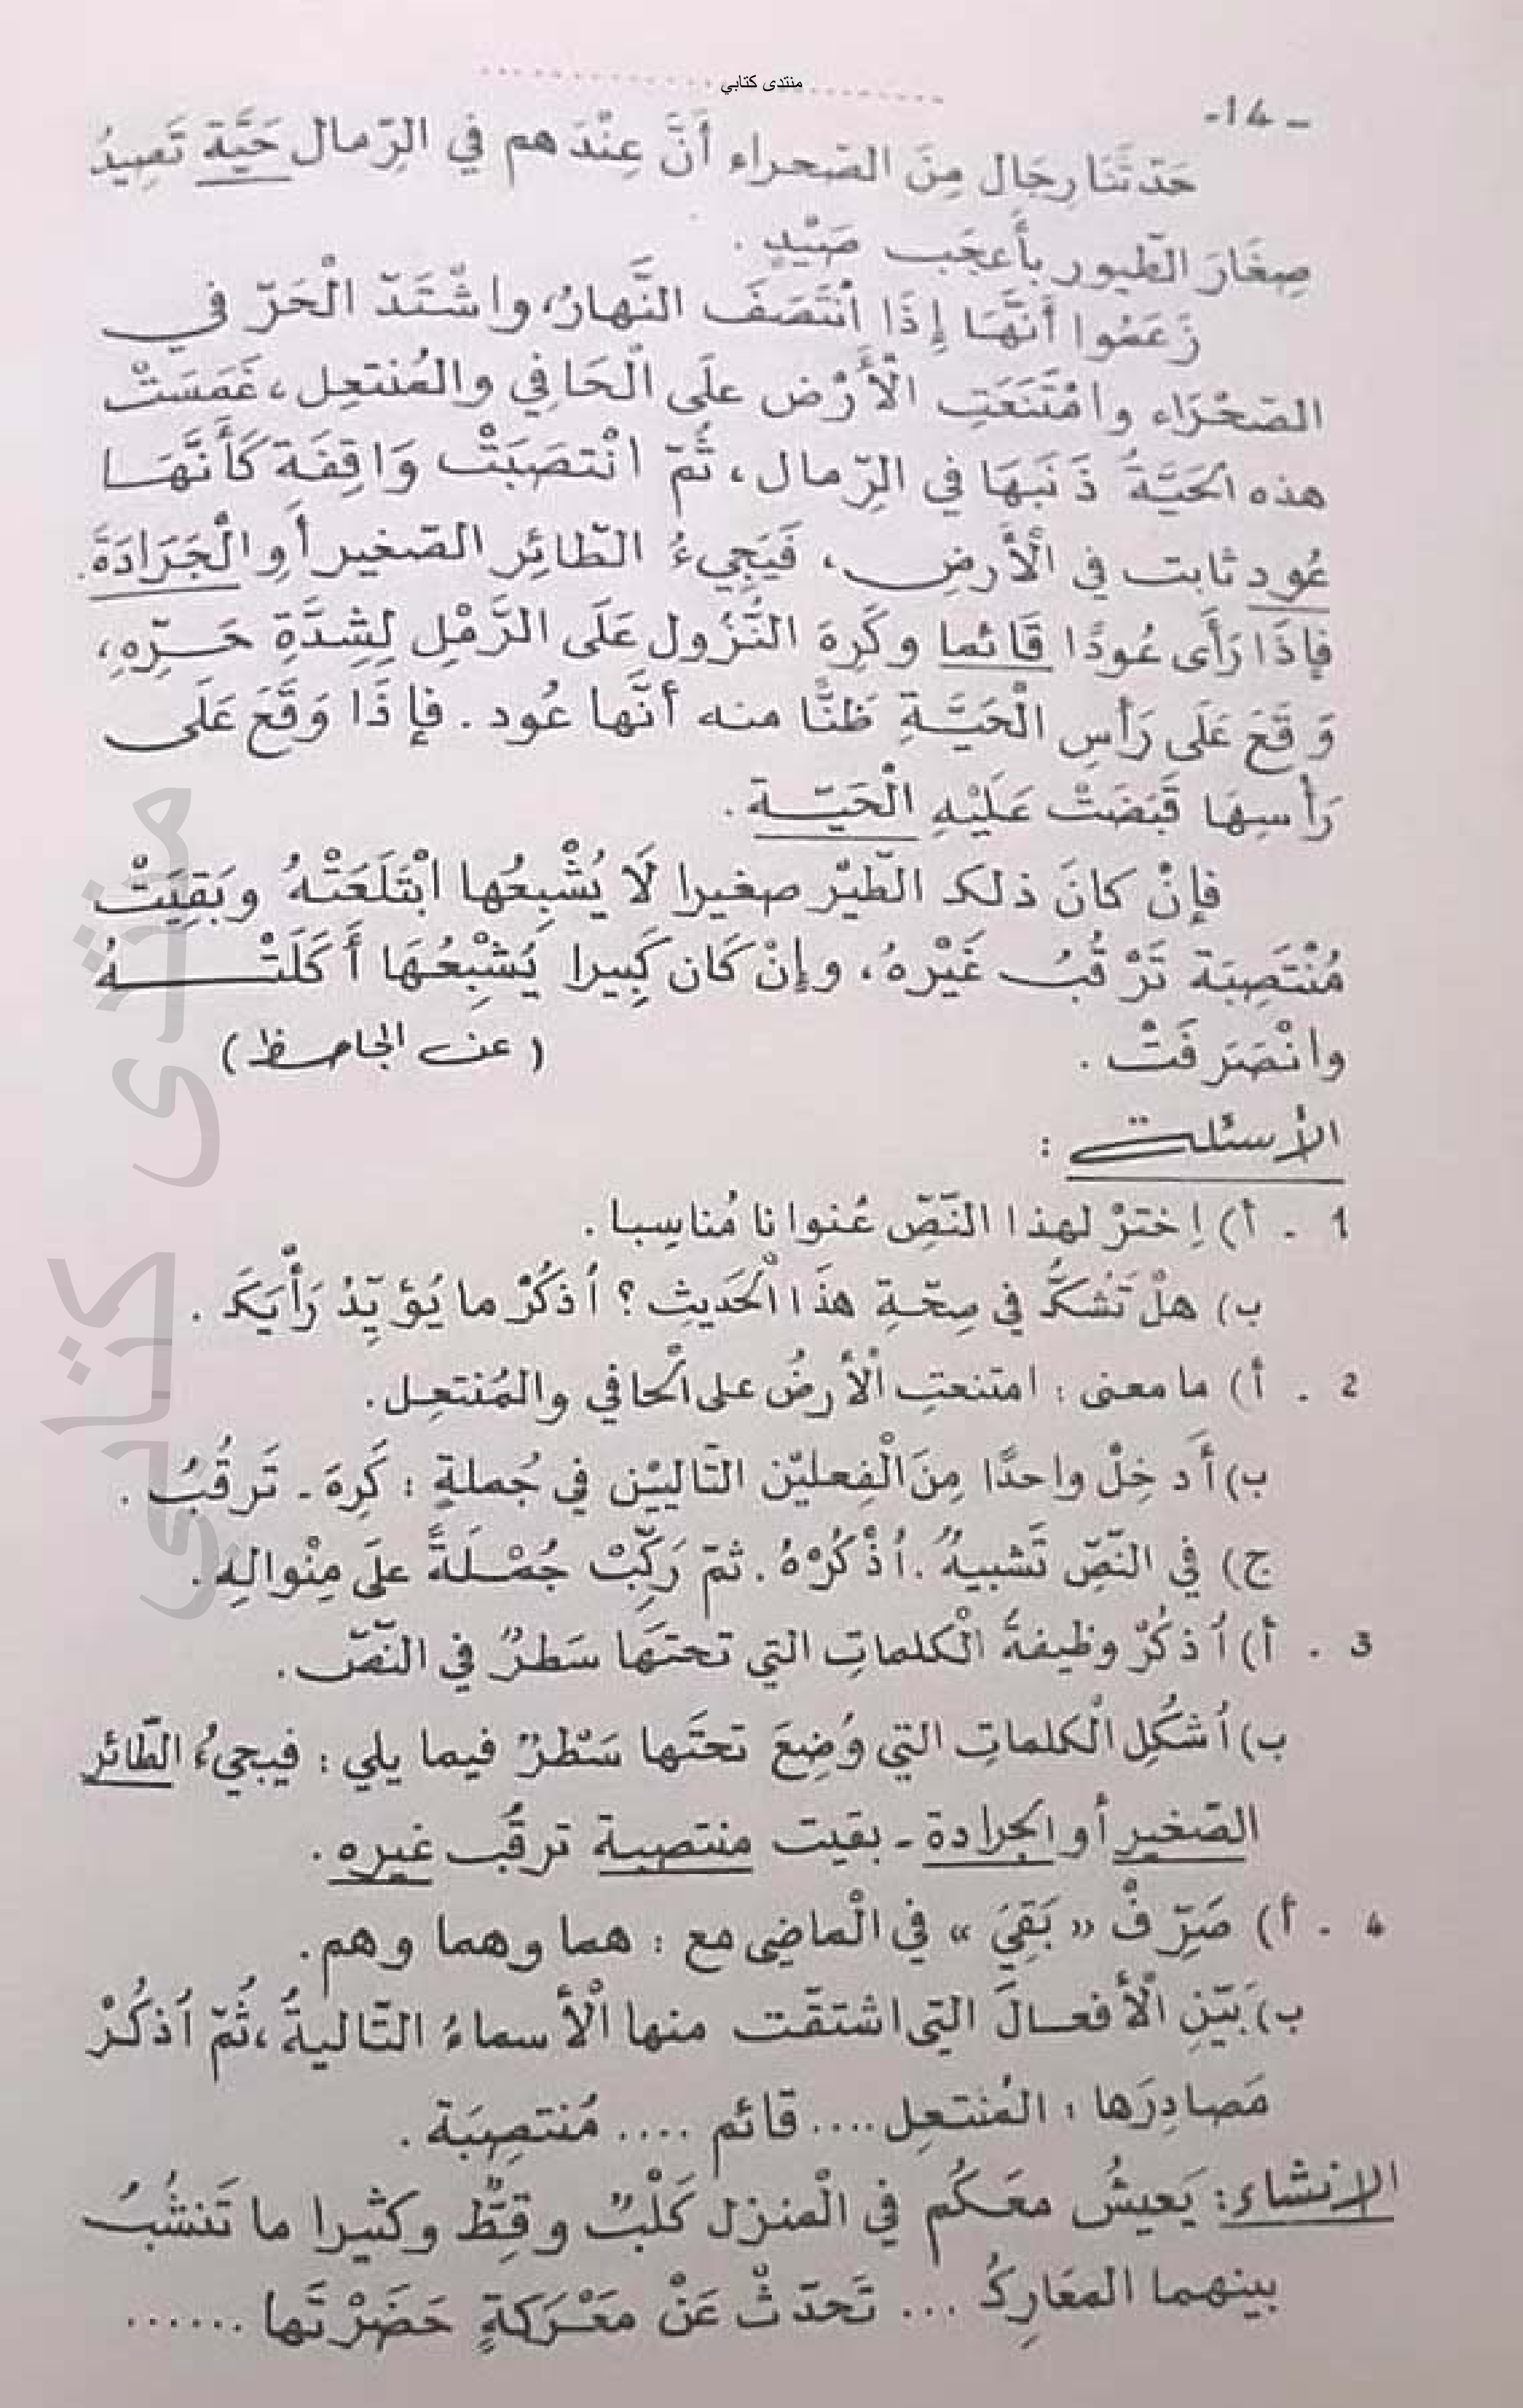 منتدى كتابي
- 14 -
حَدّثَنَا رِجَال مِنَ الصّحراء أَنَّ عِنْدَهم في الرّمال حَيَّة تَصِيدُ
صِغَارَ الطّيور بأَعجَب صَيْدٍ .
زَعَمُوا أَنَّهَا إِذَا اُنتَصَفَ النَّهارُ، واشْتَدّ الْحَرّ في
الصّحْرَاء وامْتَنَعَتِ الْأَرْض علَى الْحَافِي والمُنتعِل، غَمَسَتْ
هذه الحَيَّةُ ذَنَبَهَا في الرّمال، ثُمّ انْتصَبَتْ وَاقِفَة كَأَنَّهَا
عُود ثابت في الْأَرضِ، فَيَجِيءُ الطّائِر الصّغير أَوِ الْجَرَادَةَ.
فإذَا رَأَى عُودًا قَائما وكَرِهَ النُّزُول عَلَى الرَّمْلِ لِشِدَّةِ حَرّهِ،
وَقَعَ عَلَى رَأْسِ الْحَيَّةِ ظَنًّا منه أَنَّها عُود . فإذَا وَقَعَ عَلَى
رَأسِهَا قَبَضَتْ عَلَيْهِ الْحَيّة .
فإنْ كانَ ذلك الطّيْر صغيرا لَا يُشْبِعُها ابْتَلَعَتْهُ وبَقِيَتْ
مُنْتَصِبَة تَرْقُبُ غَيْرهُ، وإنْ كَان كَبِيرا يُشْبِعُهَا أَكَلَتْهُ
وانْصَرَفَتْ .
( عن الجاحظ )
الأسئلة :
1 . أ) اِختَرْ لهذا النّصّ عُنوانا مُناسِبا .
ب) هلْ تَشُكّ في صِحّةِ هذَا الْحَديثِ ؟ اُذكُرْ ما يُؤيّدُ رَأْيَكَ .
2 . أ) ما معنى : امتنعتِ الْأَرضُ على الْحافي والمُنتعِل.
ب) أَدخِلْ واحدًا مِنَ الْفِعليْن التّالييْن في جُملةٍ : كَرِهَ - تَرقُبُ .
ج) في النّصِّ تَشبيهٌ . اُذْكُرْهُ . ثمّ رَكِّبْ جُمْلَةً علَى مِنْوالِهِ.
3 . أ) اُذكُرْ وظيفةَ الْكلماتِ التي تحتَها سَطرٌ في النّصّ.
ب) اُشكُلِ الْكلماتِ التي وُضِعَ تحتَها سَطْرٌ فيما يلي : فيجيءُ الطّائر
الصّغير أو الجرادة - بقيت منتصبة ترقُب غيره .
4 . أ) صَرّفْ « بَقِيَ » في الْماضِي مع : هما وهما وهم.
ب) بَيّنِ الْأَفعالَ التي اشتقّت منها الْأَسماءُ التّاليةُ، ثُمّ اُذكُرْ
مَصادِرَها : المُنتعِل .... قائم .... مُنتصِبَة .
الإنشاء : يَعيشُ معَكُم في الْمنزل كَلْبٌ وقِطٌّ وكثيرا ما تَنشُبُ
بينهما المعَارِكُ ... تَحدّثْ عَنْ مَعْرَكةٍ حَضَرْتَها ......
منتدى كتابي